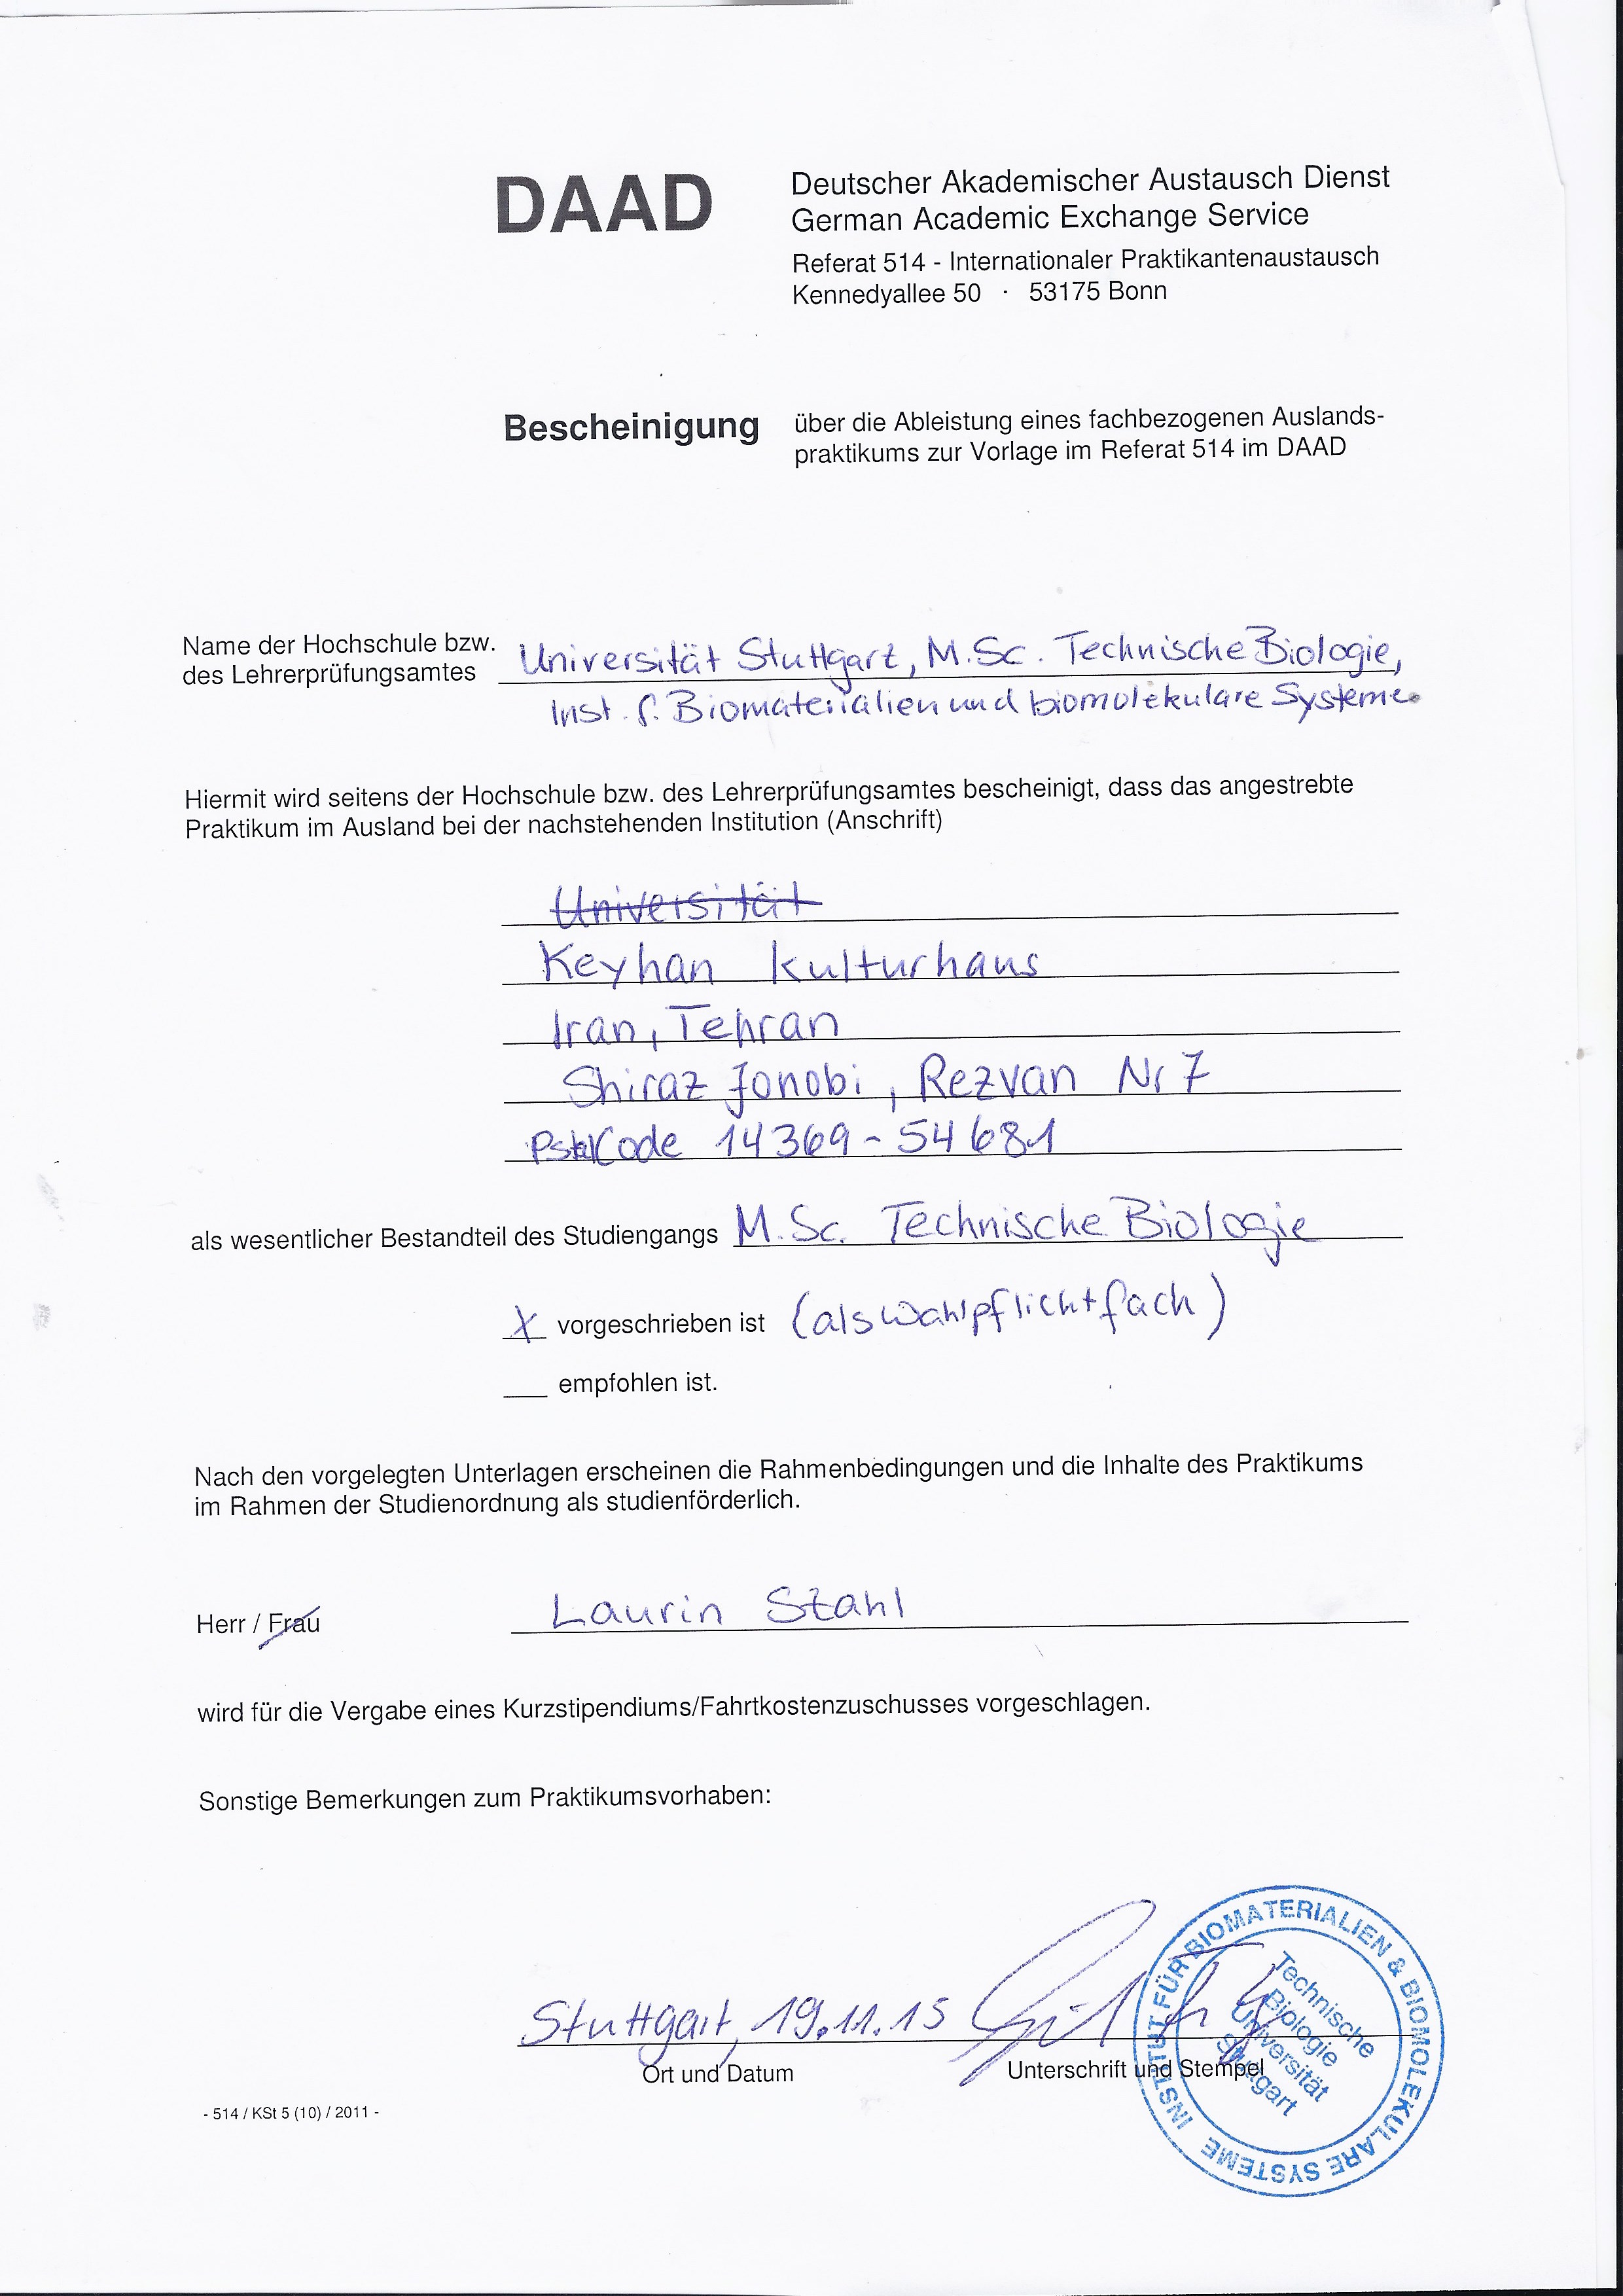 DAAD
Deutscher Akademischer Austausch Dienst
German Academic Exchange Service
Referat 514 - Internationaler Praktikantenaustausch
Kennedyallee 50 · 53175 Bonn
Bescheinigung
über die Ableistung eines fachbezogenen Auslands-
praktikums zur Vorlage im Referat 514 im DAAD
Name der Hochschule bzw.
des Lehrerprüfungsamtes
Universität Stuttgart, M.Sc. Technische Biologie,
Inst. f. Biomaterialien und biomolekulare Systeme
Hiermit wird seitens der Hochschule bzw. des Lehrerprüfungsamtes bescheinigt, dass das angestrebte
Praktikum im Ausland bei der nachstehenden Institution (Anschrift)
Universität
Keyhan Kulturhaus
Iran, Tehran
Shiraz Jonobi, Rezvan Nr 7
Code 14369-54681
als wesentlicher Bestandteil des Studiengangs M.Sc. Technische Biologie
X vorgeschrieben ist (als Wahlpflichtfach)
___ empfohlen ist.
Nach den vorgelegten Unterlagen erscheinen die Rahmenbedingungen und die Inhalte des Praktikums
im Rahmen der Studienordnung als studienförderlich.
Herr / Frau Laurin Stahl
wird für die Vergabe eines Kurzstipendiums/Fahrtkostenzuschusses vorgeschlagen.
Sonstige Bemerkungen zum Praktikumsvorhaben:
Stuttgart, 19.11.15
Ort und Datum
Unterschrift und Stempel
INSTITUT FÜR BIOMATERIALIEN & BIOMOLEKULARE SYSTEME
Technische
Biologie
Universität
Stuttgart
- 514 / KSt 5 (10) / 2011 -